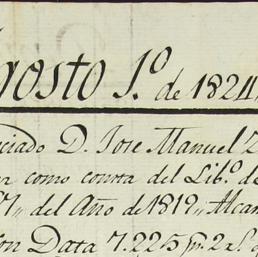 gosto 1.º de 1824
ciado D. Jose Manuel
como consta del Lib.º de
del Año de 1819,, Alcan
on Data 7.225 p.s 2 r.s